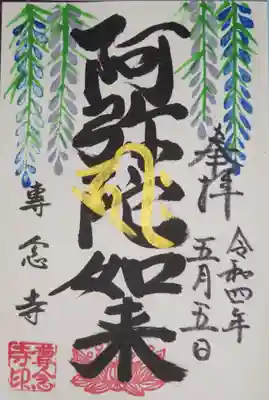 奉拝
令和四年
五月五日
阿弥陀如来
專念寺
專念
寺印